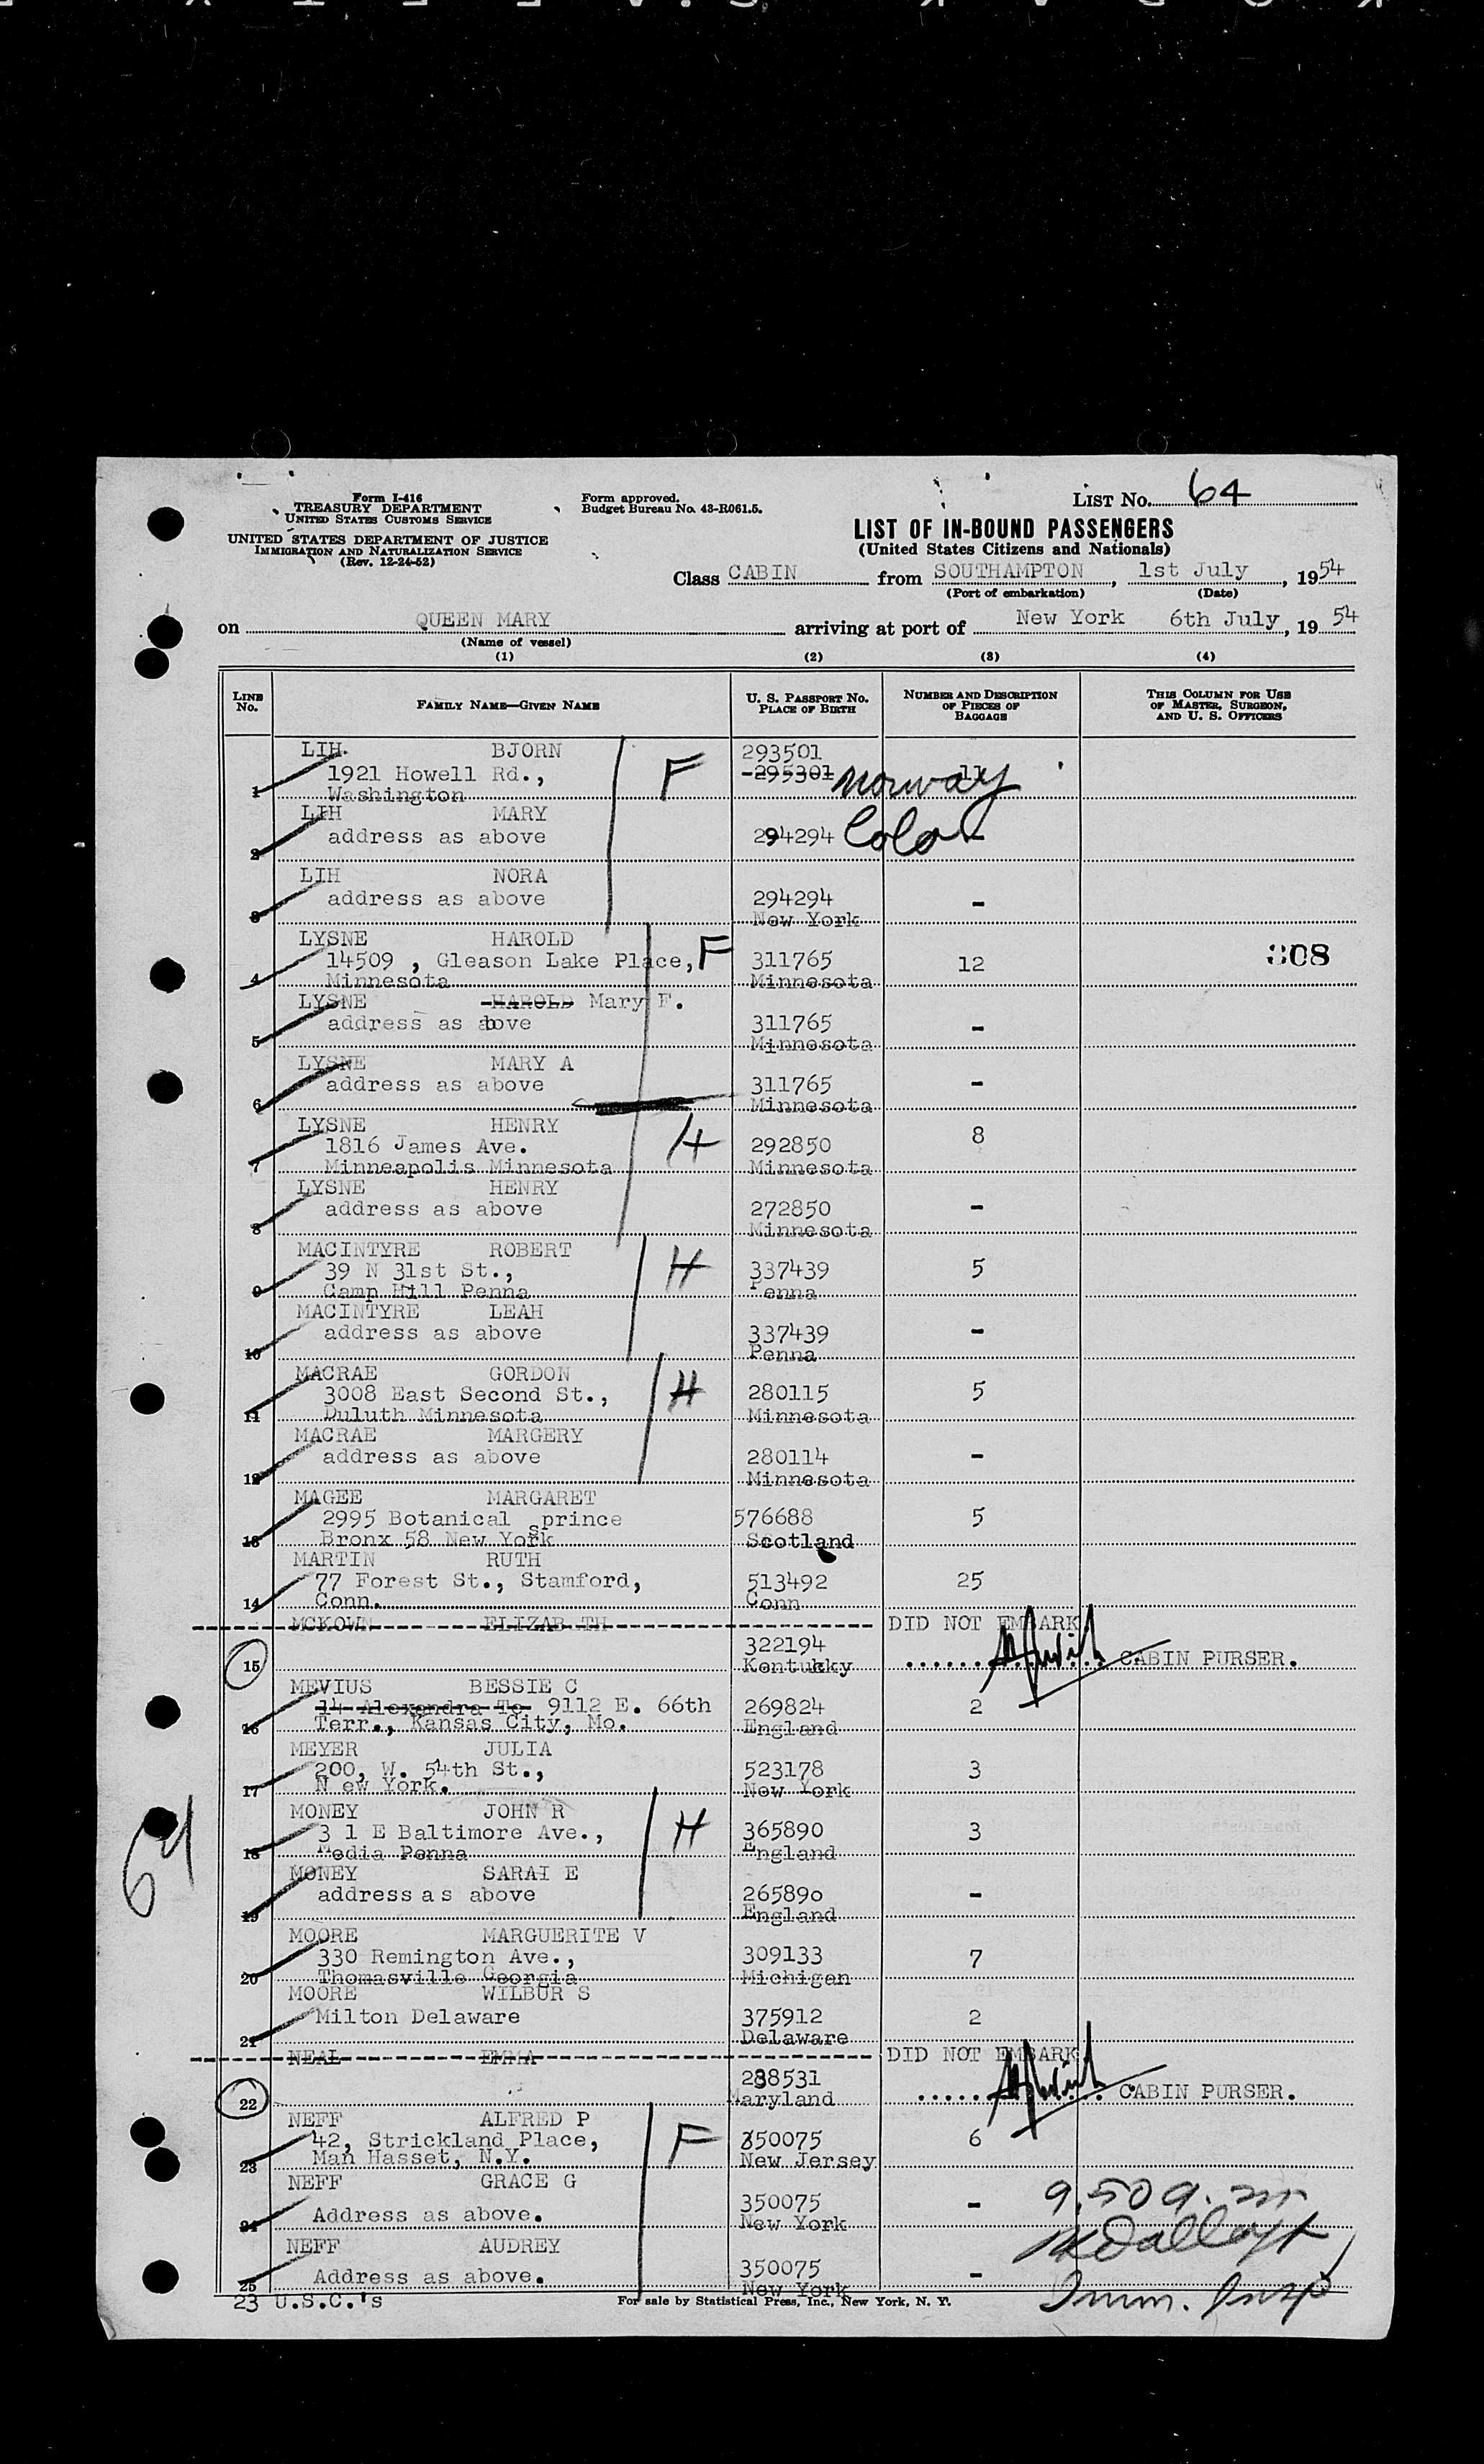 Form I-416
TREASURY DEPARTMENT
UNITED STATES CUSTOMS SERVICE
UNITED STATES DEPARTMENT OF JUSTICE
IMMIGRATION AND NATURALIZATION SERVICE
(Rev. 12-24-52)
Form approved.
Budget Bureau No. 43-R061.5.
LIST NO. 64
LIST OF IN-BOUND PASSENGERS
(United States Citizens and Nationals)
Class CABIN from SOUTHAMPTON, 1st July, 1954
(Port of embarkation) (Date)
on QUEEN MARY arriving at port of New York 6th July, 19 54
(Name of vessel)
(1) (2) (3) (4)
LINE No. FAMILY NAME—GIVEN NAME U. S. PASSPORT NO. PLACE OF BIRTH NUMBER AND DESCRIPTION OF PIECES OF BAGGAGE THIS COLUMN FOR USE OF MASTER, SURGEON, AND U. S. OFFICERS
LIH BJORN 293501
1921 Howell Rd., F 295301 Norway 11
1 Washington
LIH MARY
address as above 294294 Colo -
2
LIH NORA
address as above 294294 -
3 New York
LYSNE HAROLD
14509 , Gleason Lake Place, F 311765 12 308
4 Minnesota Minnesota
LYSNE HAROLD Mary F.
address as above 311765 -
5 Minnesota
LYSNE MARY A
address as above 311765 -
6 Minnesota
LYSNE HENRY 8
1816 James Ave. H 292850
7 Minneapolis Minnesota Minnesota
LYSNE HENRY
address as above 272850 -
8 Minnesota
MACINTYRE ROBERT
39 N 31st St., H 337439 5
9 Camp Hill Penna Penna
MACINTYRE LEAH
address as above 337439 -
10 Penna
MACRAE GORDON
3008 East Second St., H 280115 5
11 Duluth Minnesota Minnesota
MACRAE MARGERY
address as above 280114 -
12 Minnesota
MAGEE MARGARET
2995 Botanical sprince 576688 5
13 Bronx 58 New York Scotland
MARTIN RUTH
77 Forest St., Stamford, 513492 25
14 Conn. Conn
MCKOWN ELIZAB TH DID NOT EMBARK
322194
15 Kontukky CABIN PURSER.
MEVIUS BESSIE C
14 Alexandra Te 9112 E. 66th 269824 2
16 Terr., Kansas City, Mo. England
MEYER JULIA
200, W. 54th St., 523178 3
17 N ew York. New York
MONEY JOHN R
3 1 E Baltimore Ave., H 365890 3
18 Media Penna England
MONEY SARAI E
address as above 265890 -
19 England
MOORE MARGUERITE V
330 Remington Ave., 309133 7
20 Thomasville Georgia Michigan
MOORE WILBUR S
Milton Delaware 375912 2
21 Delaware
NEAL EMMA DID NOT EMBARK
238531
22 Maryland CABIN PURSER.
NEFF ALFRED P
42, Strickland Place, F 350075 6
23 Man Hasset, N.Y. New Jersey
NEFF GRACE G
Address as above. 350075 - 9.50 a.m
24 New York
NEFF AUDREY
Address as above. 350075 -
25 New York Imm. Insp
23 U.S.C.'s For sale by Statistical Press, Inc., New York, N. Y.
64